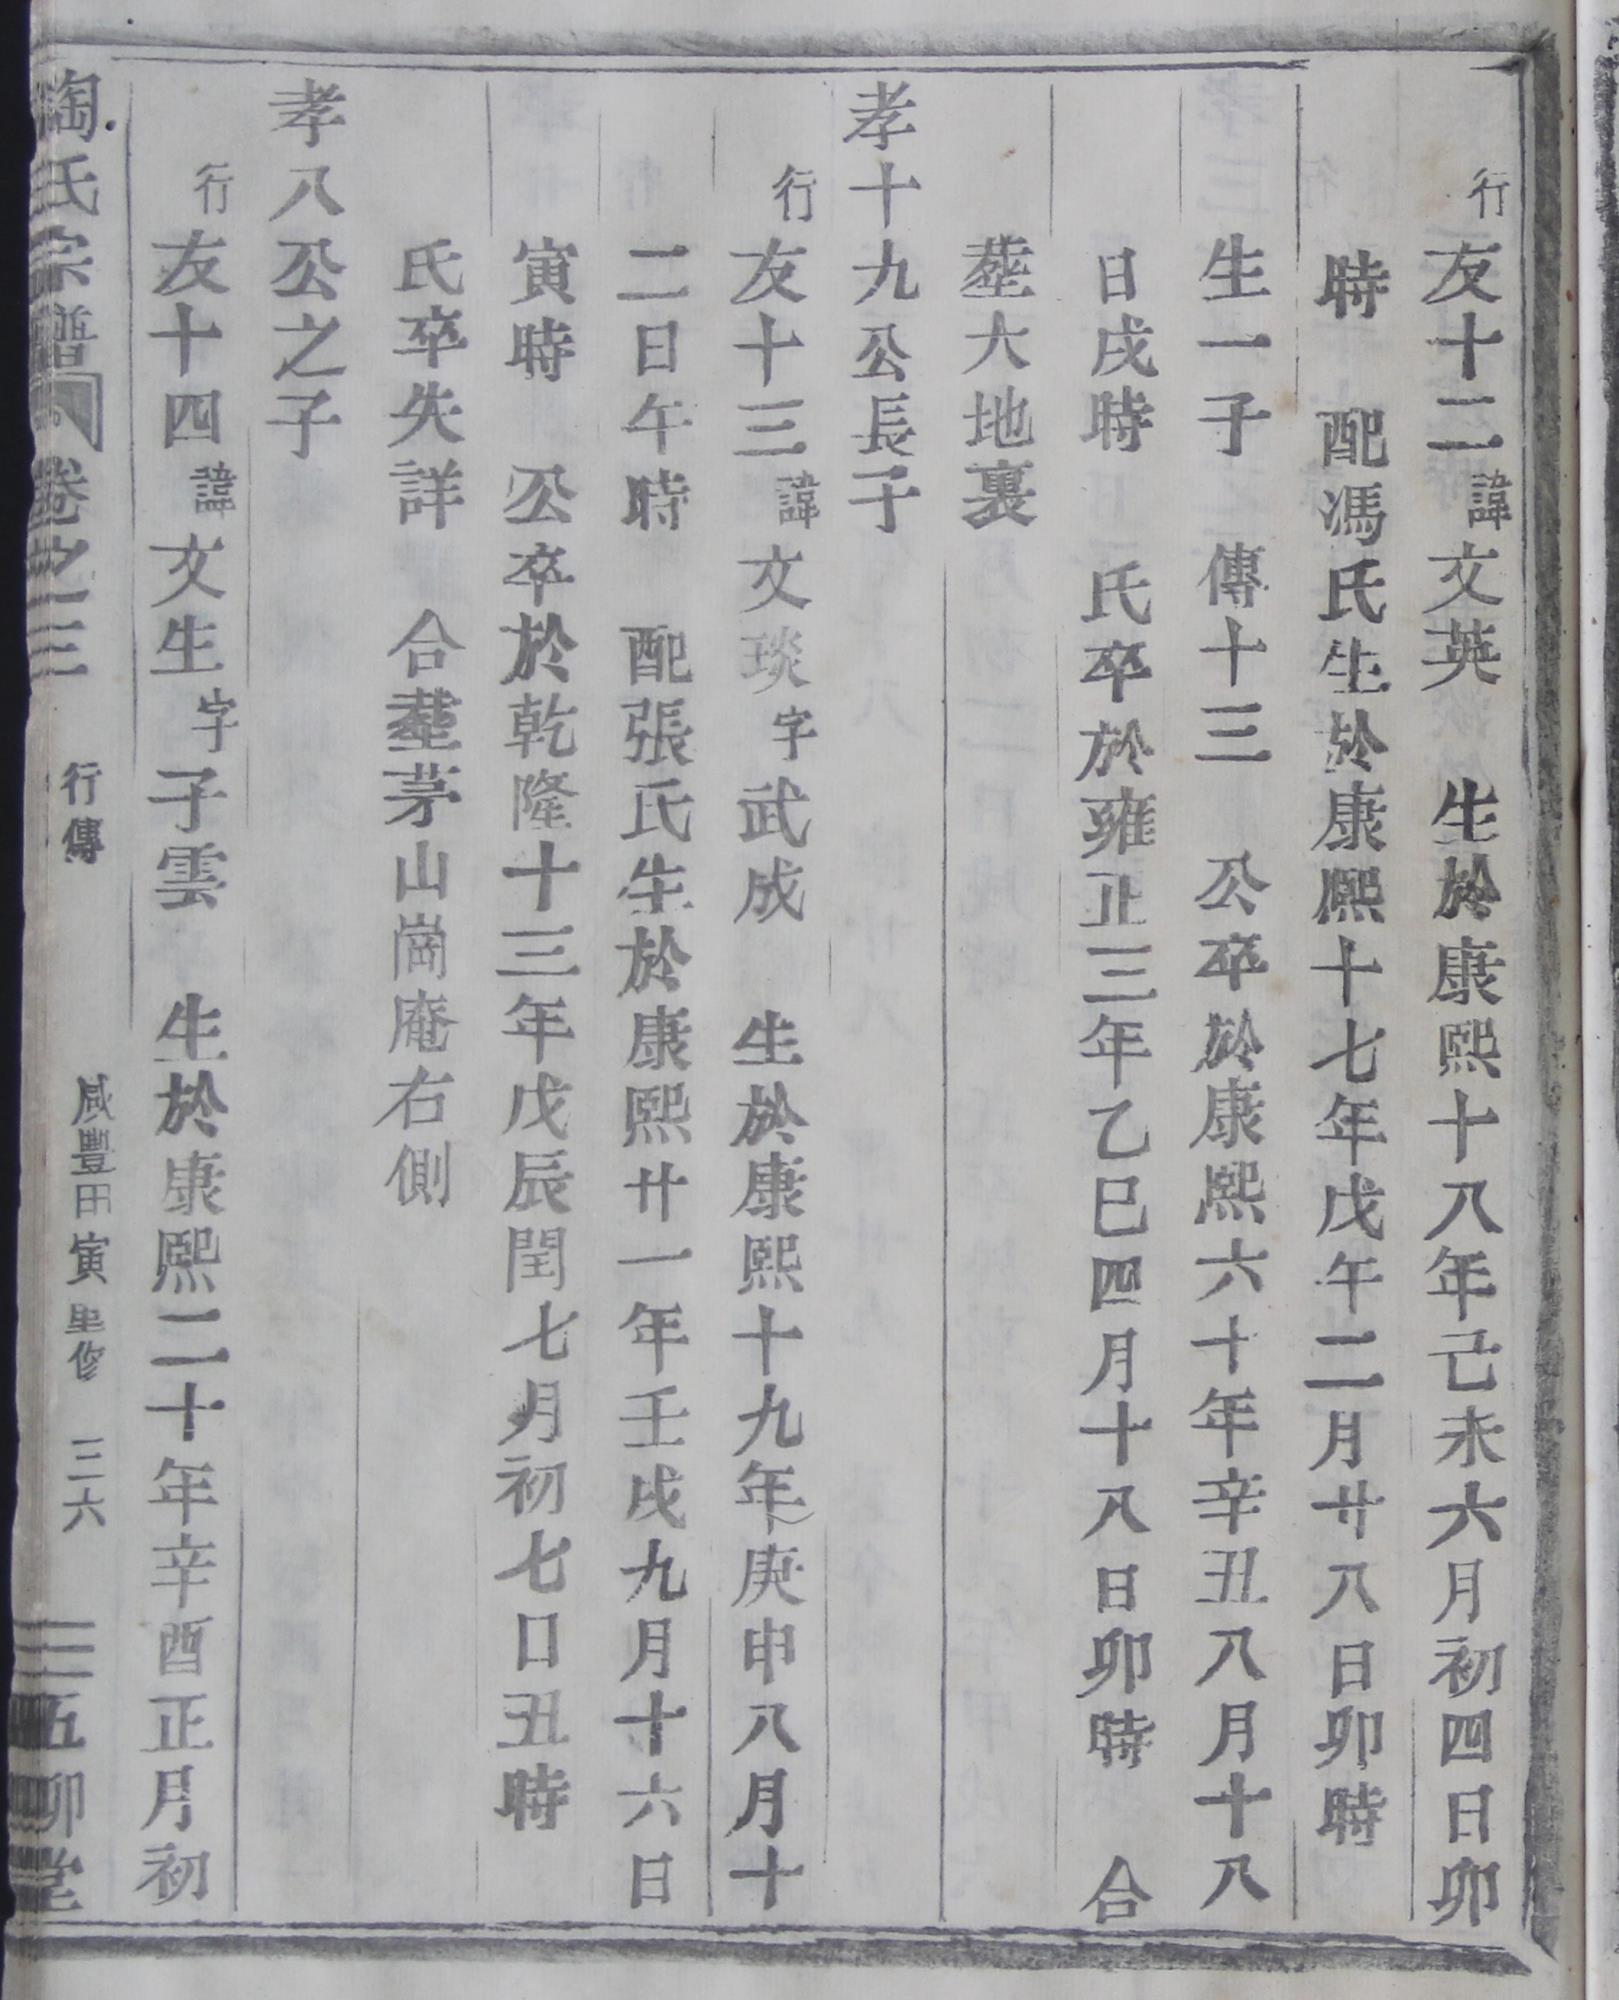 行友十二諱文英 生於康熙十八年己未六月初四日卯
時 配馮氏生於康熙十七年戊午二月廿八日卯時
生一子 傳十三 公卒於康熙六十年辛丑八月十八
日戌時 氏卒於雍正三年乙巳四月十八日卯時 合
塟大地裏
孝十九公長子
行友十三諱文琰字武成 生於康熙十九年庚申八月十
二日午時 配張氏生於康熙廿一年壬戌九月十六日
寅時 公卒於乾隆十三年戊辰閏七月初七日丑時
氏卒失詳 合塟茅山崗庵右側
孝八公之子
行友十四諱文生字子雲 生於康熙二十年辛酉正月初
陶氏宗譜 卷之三 行傳 咸豐甲寅重修 三六 五柳堂